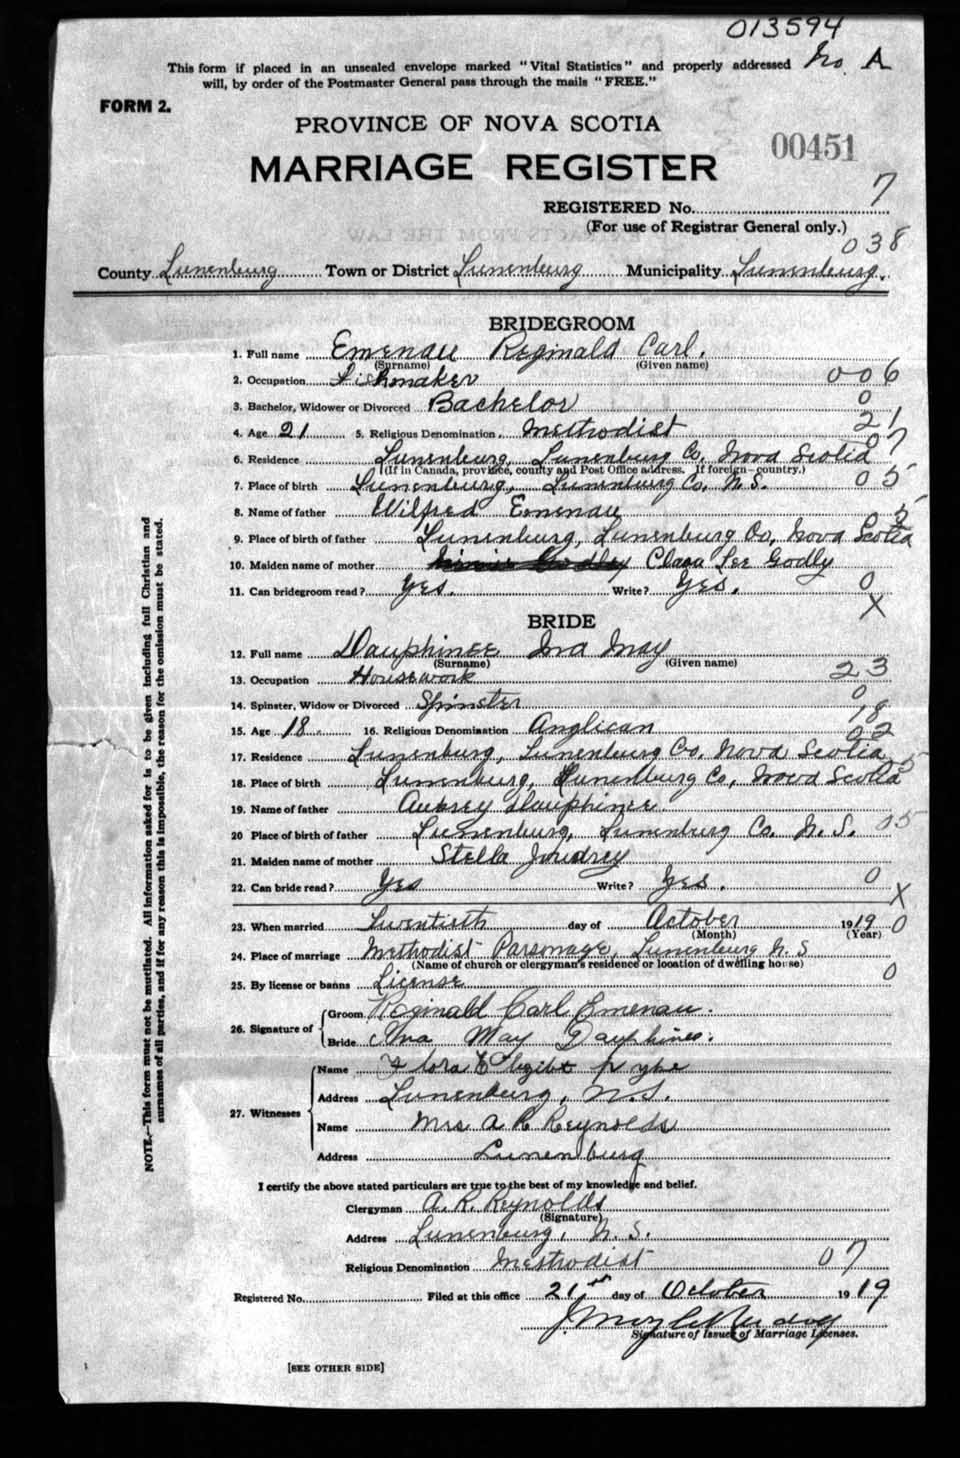 013594
This form if placed in an unsealed envelope marked "Vital Statistics" and properly addressed No. A
will, by order of the Postmaster General pass through the mails "FREE."
FORM 2.
PROVINCE OF NOVA SCOTIA
00451
MARRIAGE REGISTER
REGISTERED No. 7
(For use of Registrar General only.)
038
County Lunenburg Town or District Lunenburg Municipality Lunenburg.
BRIDEGROOM
1. Full name Emenau Reginald Carl.
(Surname) (Given name)
2. Occupation 006
3. Bachelor, Widower or Divorced Bachelor 0
4. Age 21 5. Religious Denomination Methodist 21
07
6. Residence Lunenburg, Lunenburg Co, Nova Scotia
(If in Canada, province, county and Post Office address. If foreign—country.)
7. Place of birth Lunenburg, Lunenburg Co, N.S. 05
8. Name of father Wilfred Emenau
5
9. Place of birth of father Lunenburg, Lunenburg Co, Nova Scotia
10. Maiden name of mother Clara Lee Godly
11. Can bridegroom read? Yes. Write? Yes. 0
X
BRIDE
12. Full name Dauphinee Iva May
(Surname) (Given name)
13. Occupation Housework 23
14. Spinster, Widow or Divorced Spinster 0
18
15. Age 18. 16. Religious Denomination Anglican 02
17. Residence Lunenburg, Lunenburg Co, Nova Scotia
18. Place of birth Lunenburg, Lunenburg Co, Nova Scotia
19. Name of father Aubrey Dauphinee
20 Place of birth of father Lunenburg, Lunenburg Co. N. S. 05
21. Maiden name of mother Stella Joudrey
22. Can bride read? Yes Write? Yes. 0
X
23. When married Twentieth day of October 1919 0
(Month) (Year)
24. Place of marriage Methodist Parsonage, Lunenburg N. S
(Name of church or clergyman's residence or location of dwelling house)
25. By license or banns License 0
26. Signature of Groom Reginald Carl Emenau.
Bride Iva May Dauphinee.
27. Witnesses Name Flora
Address Lunenburg, N.S.
Name Mrs A R Reynolds
Address Lunenburg
I certify the above stated particulars are true to the best of my knowledge and belief.
Clergyman A. R. Reynolds
(Signature)
Address Lunenburg, N. S.
Religious Denomination Methodist 07
Registered No. Filed at this office 21st day of October 1919
Signature of Issuer of Marriage Licenses.
[SEE OTHER SIDE]
NOTE.—This form must not be mutilated. All information asked for is to be given including full Christian and
surnames of all parties, and if for any reason this is impossible, the reason for the omission must be stated.